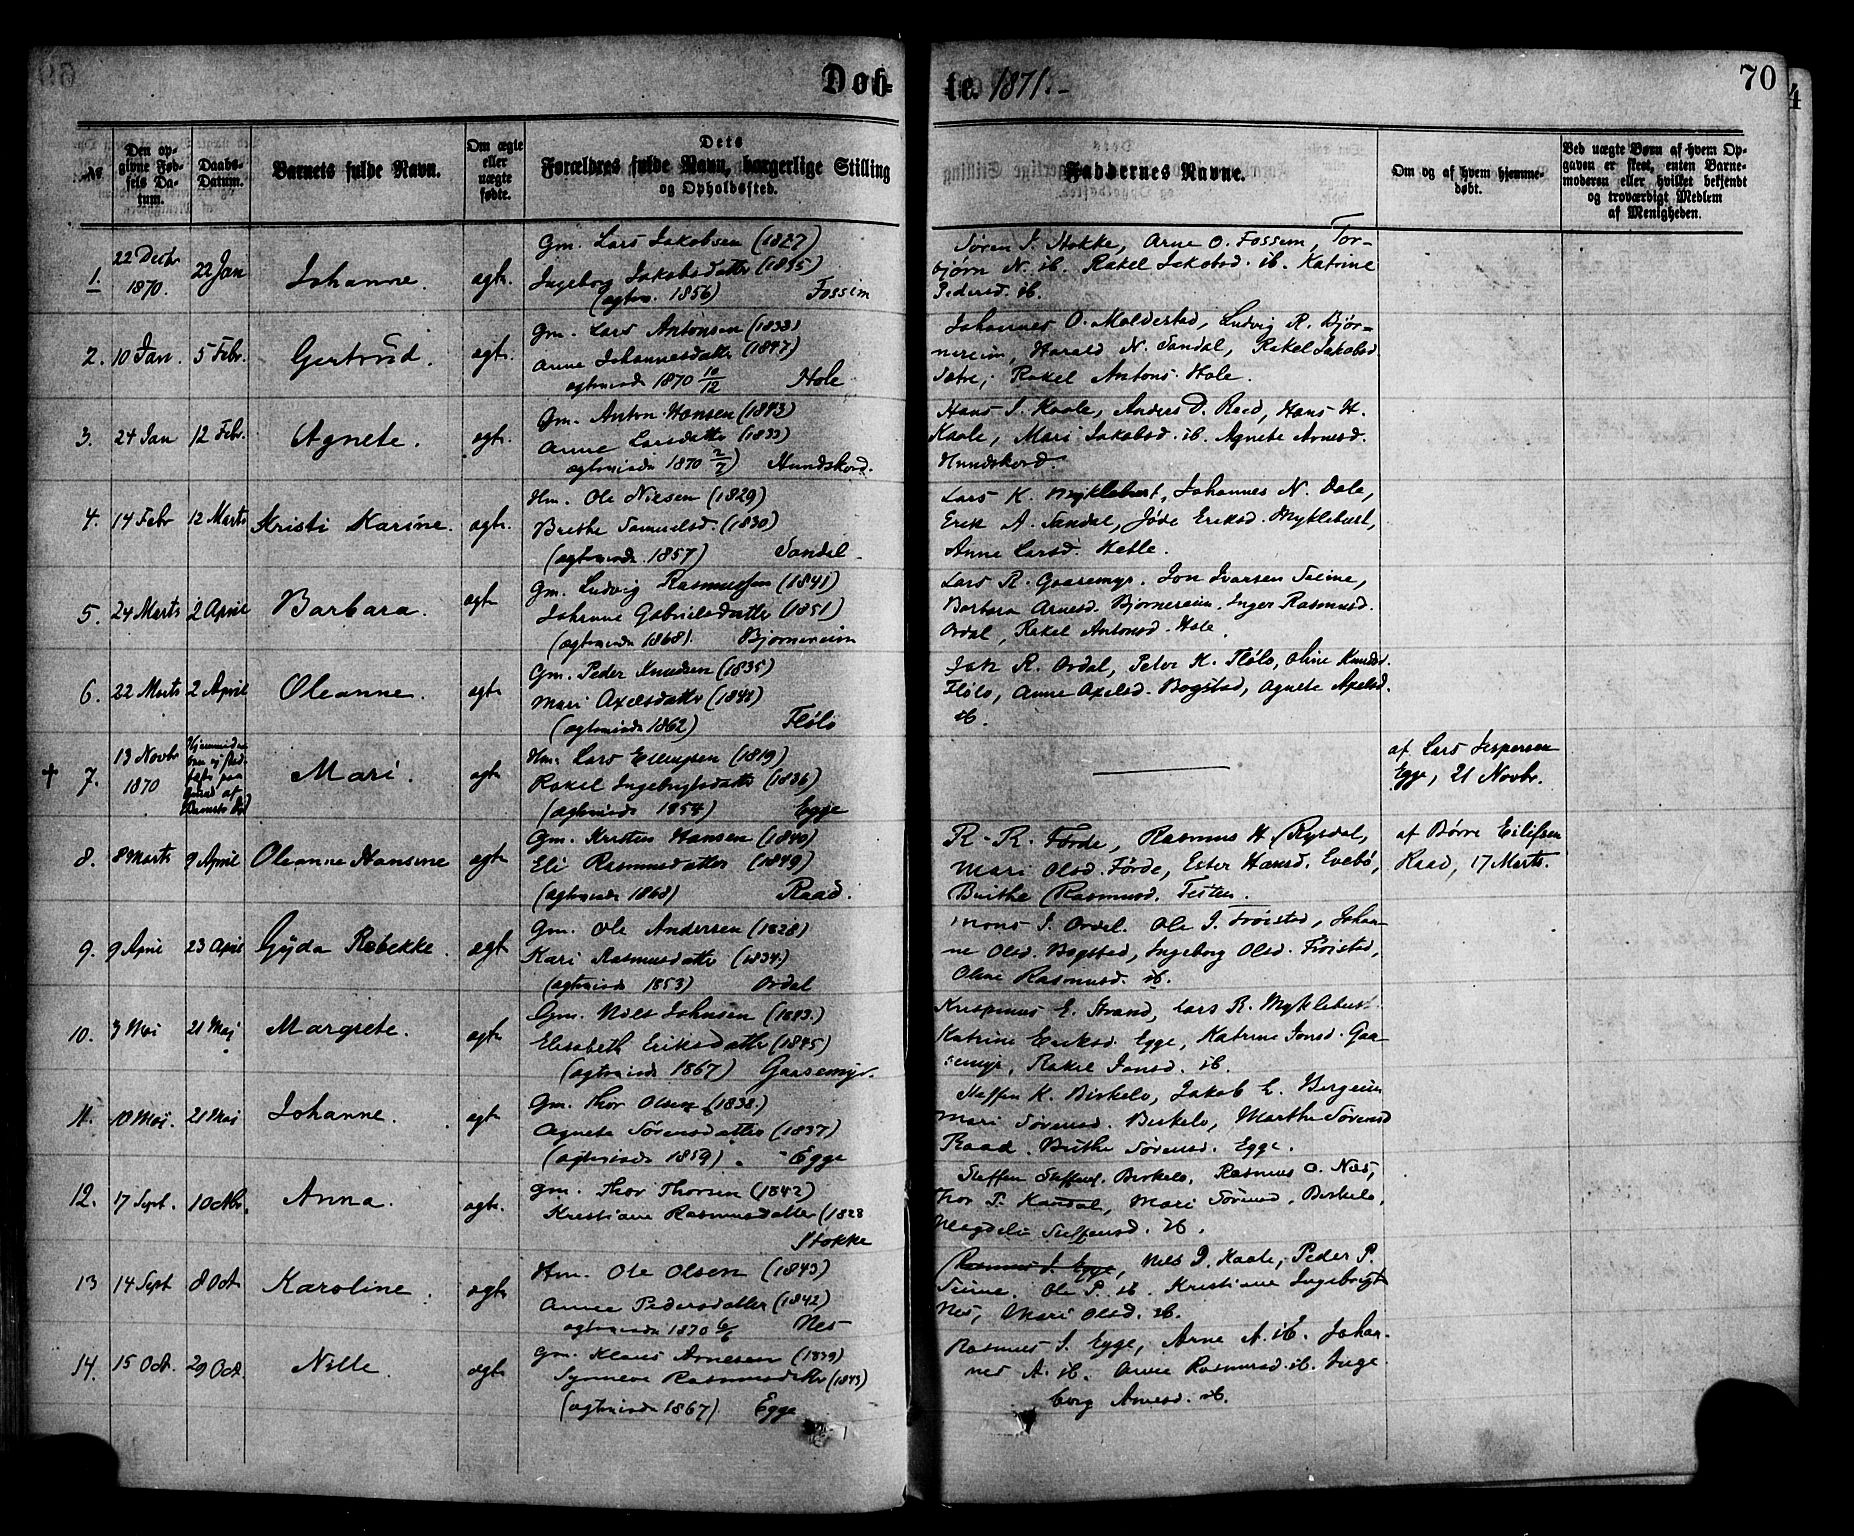 Døb-
te. 1871.-
70
4
No.
Den op-
givne Fød-
sels Da-
tum.
Daabs-
Datum.
Barnets fulde Navn.
Om ægte
eller
uægte
fødte.
Dets
Forældres fulde Navn, borgerlige Stilling
og Opholdssted.
Faddernes Navne.
Om og af hvem hjemme-
døbt.
Ved uægte Børn af hvem Op-
gaven er skeet, enten Barne-
moderen eller hvilket bekjendt
og troværdigt Medlem
af Menigheden.
1.
22 Decbr
1870.
22 Jan
Johanne.
ægte.
Gm. Lars Jakobsen (1827)
Ingeborg Jakobsdatter (1835)
(ægtev. 1856) Fossem
Søren J. Stokke, Arne O. Fossem, Tor-
bjørn N. ib. Rakel Jakobsd. ib. Katrine
Pedersd. ib.
2. 10 Jan. 5 Febr.
Gertrud.
ægt.
Gm. Lars Antonsen (1833)
Anne Johannesdatter (1847)
ægteviede 1870 10/12 Hole
Johannes O. Moldestad, Ludvig R. Bjør-
nereim, Harald N. Sandal, Rakel Jakobsd.
Rakel Antons. Hole.
3. 24 Jan 12 Febr.
Agnete.
ægt.
Gm. Anton Hansen (1843)
Anne Larsdatter (1833)
ægteviede 1870 2/7) Hundskord.
Hans J. Kaale, Anders D. Reed, Hans H.
Kaale, Mari Jakobsd. ib. Agnete Arnesd.
Hundskord.
4. 14 Febr 12 Marts
Kristi Karine.
ægt.
Hm. Ole Nilsen (1829)
Brithe Samuelsd (1830)
(ægteviede 1857) Sandal
Lars K. Myklebust, Johannes N. Dale,
Erik A. Sandal, Jøde Eriksd. Myklebust,
Anne Larsd. Hetle.
5. 24 Marts 2 April
Barbara.
ægt
Gm. Ludvig Rasmussen (1841)
Johanne Gabrielsdatter (1851)
(ægteviede 1868). Bjørnereim
Lars R. Gaasemyr. Jon Ivarsen Seime,
Barbara Arnesd. Bjørnereim. Inger Rasmusd.
Ordal, Rakel Antonsd. Hole.
6. 22 Marts 2 April
Oleanne.
ægt
Gm. Peder Knudsen (1835)
Mari Axelsdatter (1841)
(ægteviede 1862) FløLo
R. Ordal, Peter K. Flølo, Oline Knudsd.
Flølo, Anne Axelsd. Bogstad, Agnete Axelsd.
ib.
† 7.
13 Novbr
1870
Barnets Død
Mari.
ægt
Hm. Lars (1819)
Rakel Ingebrigtsdatter (1836)
(ægteviede 1854) Egge
af Lars Jespersen
Egge, 21 Novbr.
8. 8 Marts 9 April
Oleanne Hansine
ægt
Gm. Kristen Hansen (1840)
Eli Rasmusdatter (1849)
(ægteviede 1868) Raad.
R. R. Førde, Rasmus H. Rysdal,
Mari Olsd. Førde, Ester Hansd. Evebø,
Brithe Rasmusd.
af Børre Eilifsen
Raad, 17 Marts.
9. 9 April 23 April
Gyda Rebekke.
ægt
Gm. Ole Andersen (1828)
Kari Rasmusdatter (1834.)
(ægteviede 1853) Ordal
Mons J. Ordal. Ole J. Frøistad, Johan-
ne Olsd. Bogstad, Ingeborg Olsd. Frøistad,
Oline Rasmusd. ib.
10. 3 Mai 21 Maj
Margrete.
ægt
Gm. Nils Johnsen (1843.)
Elisabeth Eriksdatter (1845)
(ægteviede 1867) Gaasemyr.
Krispinus E. Strand, Lars R. Myklebust.
Katrine Eriksd. Egge, Katrine Jonsd. Gaa-
semyr, Rakel Jonsd. ib.
11. 10 Maj. 21 Maj
Johanne.
ægt
Gm. Thor Olsen (1838.)
Agnete Sørensdatter (1837)
(ægteviede 1859). Egge
Steffen K. Birkelo, Jakob E. Bergeim
Mari Sørensd. Birkelo, Marthe Sørensd
Raad. Brithe Sørensd. Egge.
12. 17 Sept. 1 Octbr.
Anna.
ægt.
Gm. Thor Thorsen (1842)
Kristiane Rasmusdatter (1828
Stokke
Steffen Steffens. Birkelo. Rasmus O. Nes,
Thor P. Kandal, Mari Sørensd. Birkelo,
Magdeli Steffensd. ib.
13 14 Sept 8 Oct
Karoline.
ægt
Hm. Ole Olsen (1843)
Anne Pedersdatter (1842)
ægteviede 1870 6/6 Nes
Rasmus J. Egge, Nils D. Kaale, Peder P.
Seime. Ole P. ib. Kristiane Ingebrigt
Nes, Mari Olsd. ib.
14. 15 Oct. 29 Oct.
Nille.
ægt
Gm. Klaus Arnesen (1839)
Synneve Rasmusdatter (1843)
(ægteviede 1867). Egge
Rasmus J. Egge, Arne A. ib. Johan-
nes A. ib. Anne Rasmusd. ib. Inge-
borg Arnesd. ib.